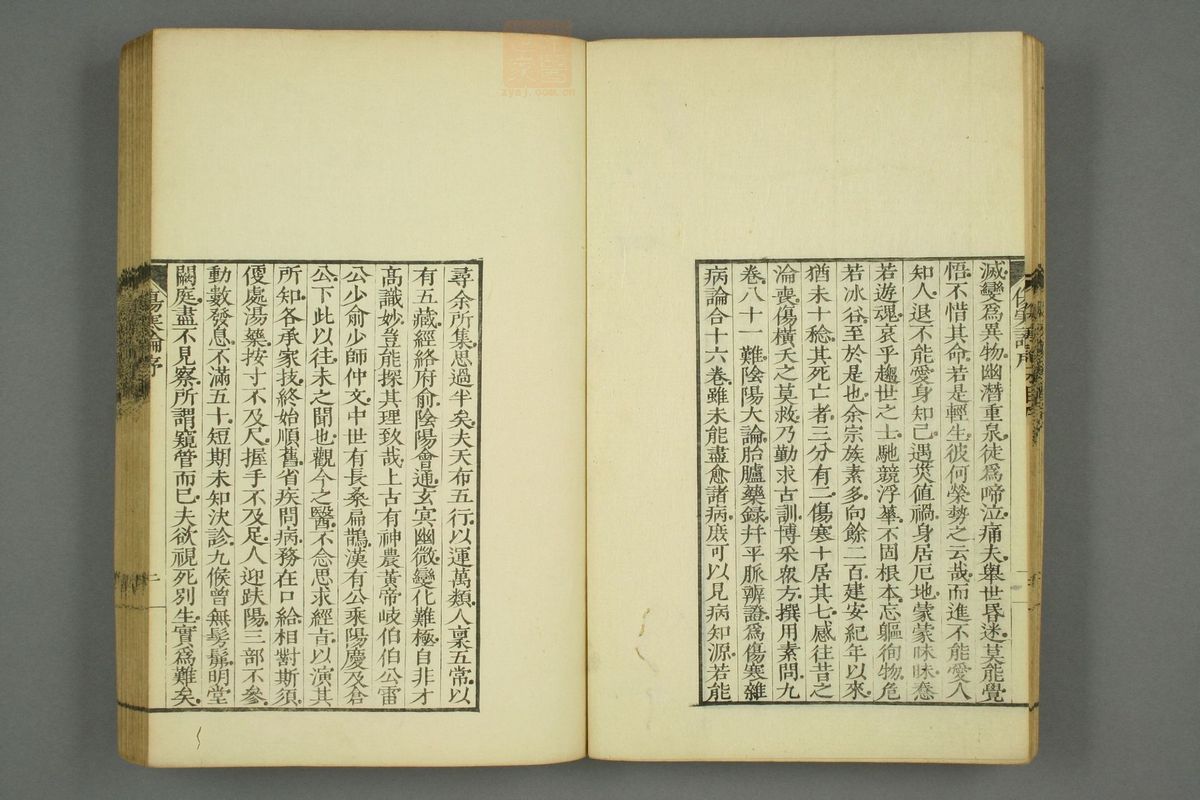 滅變爲異物幽潛重泉徒爲啼泣痛夫舉世昏迷莫能覺
悟不惜其命若是輕生彼何榮勢之云哉而進不能愛人
知人退不能愛身知己遇災値禍身居厄地蒙蒙昧昧惷
若遊魂哀乎趨世之士馳競浮華不固根本忘軀徇物危
若冰谷至於是也余宗族素多向餘二百建安紀年以來
猶未十稔其死亡者三分有二傷寒十居其七感往昔之
淪喪傷橫夭之莫救乃勤求古訓博采衆方撰用素問九
卷八十一難陰陽大論胎臚藥録幷平脈辨證爲傷寒雜
病論合十六卷雖未能盡愈諸病庶可以見病知源若能
尋余所集思過半矣夫天布五行以運萬類人稟五常以
有五藏經絡府俞陰陽會通玄冥幽微變化難極自非才
高識妙豈能探其理致哉上古有神農黃帝岐伯伯公雷
公少俞少師仲文中世有長桑扁鵲漢有公乘陽慶及倉
公下此以往未之聞也觀今之醫不念思求經旨以演其
所知各承家技終始順舊省疾問病務在口給相對斯須
便處湯藥按寸不及尺握手不及足人迎趺陽三部不參
動數發息不滿五十短期未知決診九候曾無髣髴明堂
闕庭盡不見察所謂窺管而已夫欲視死別生實爲難矣
傷寒論序
二
zysj.com.cn